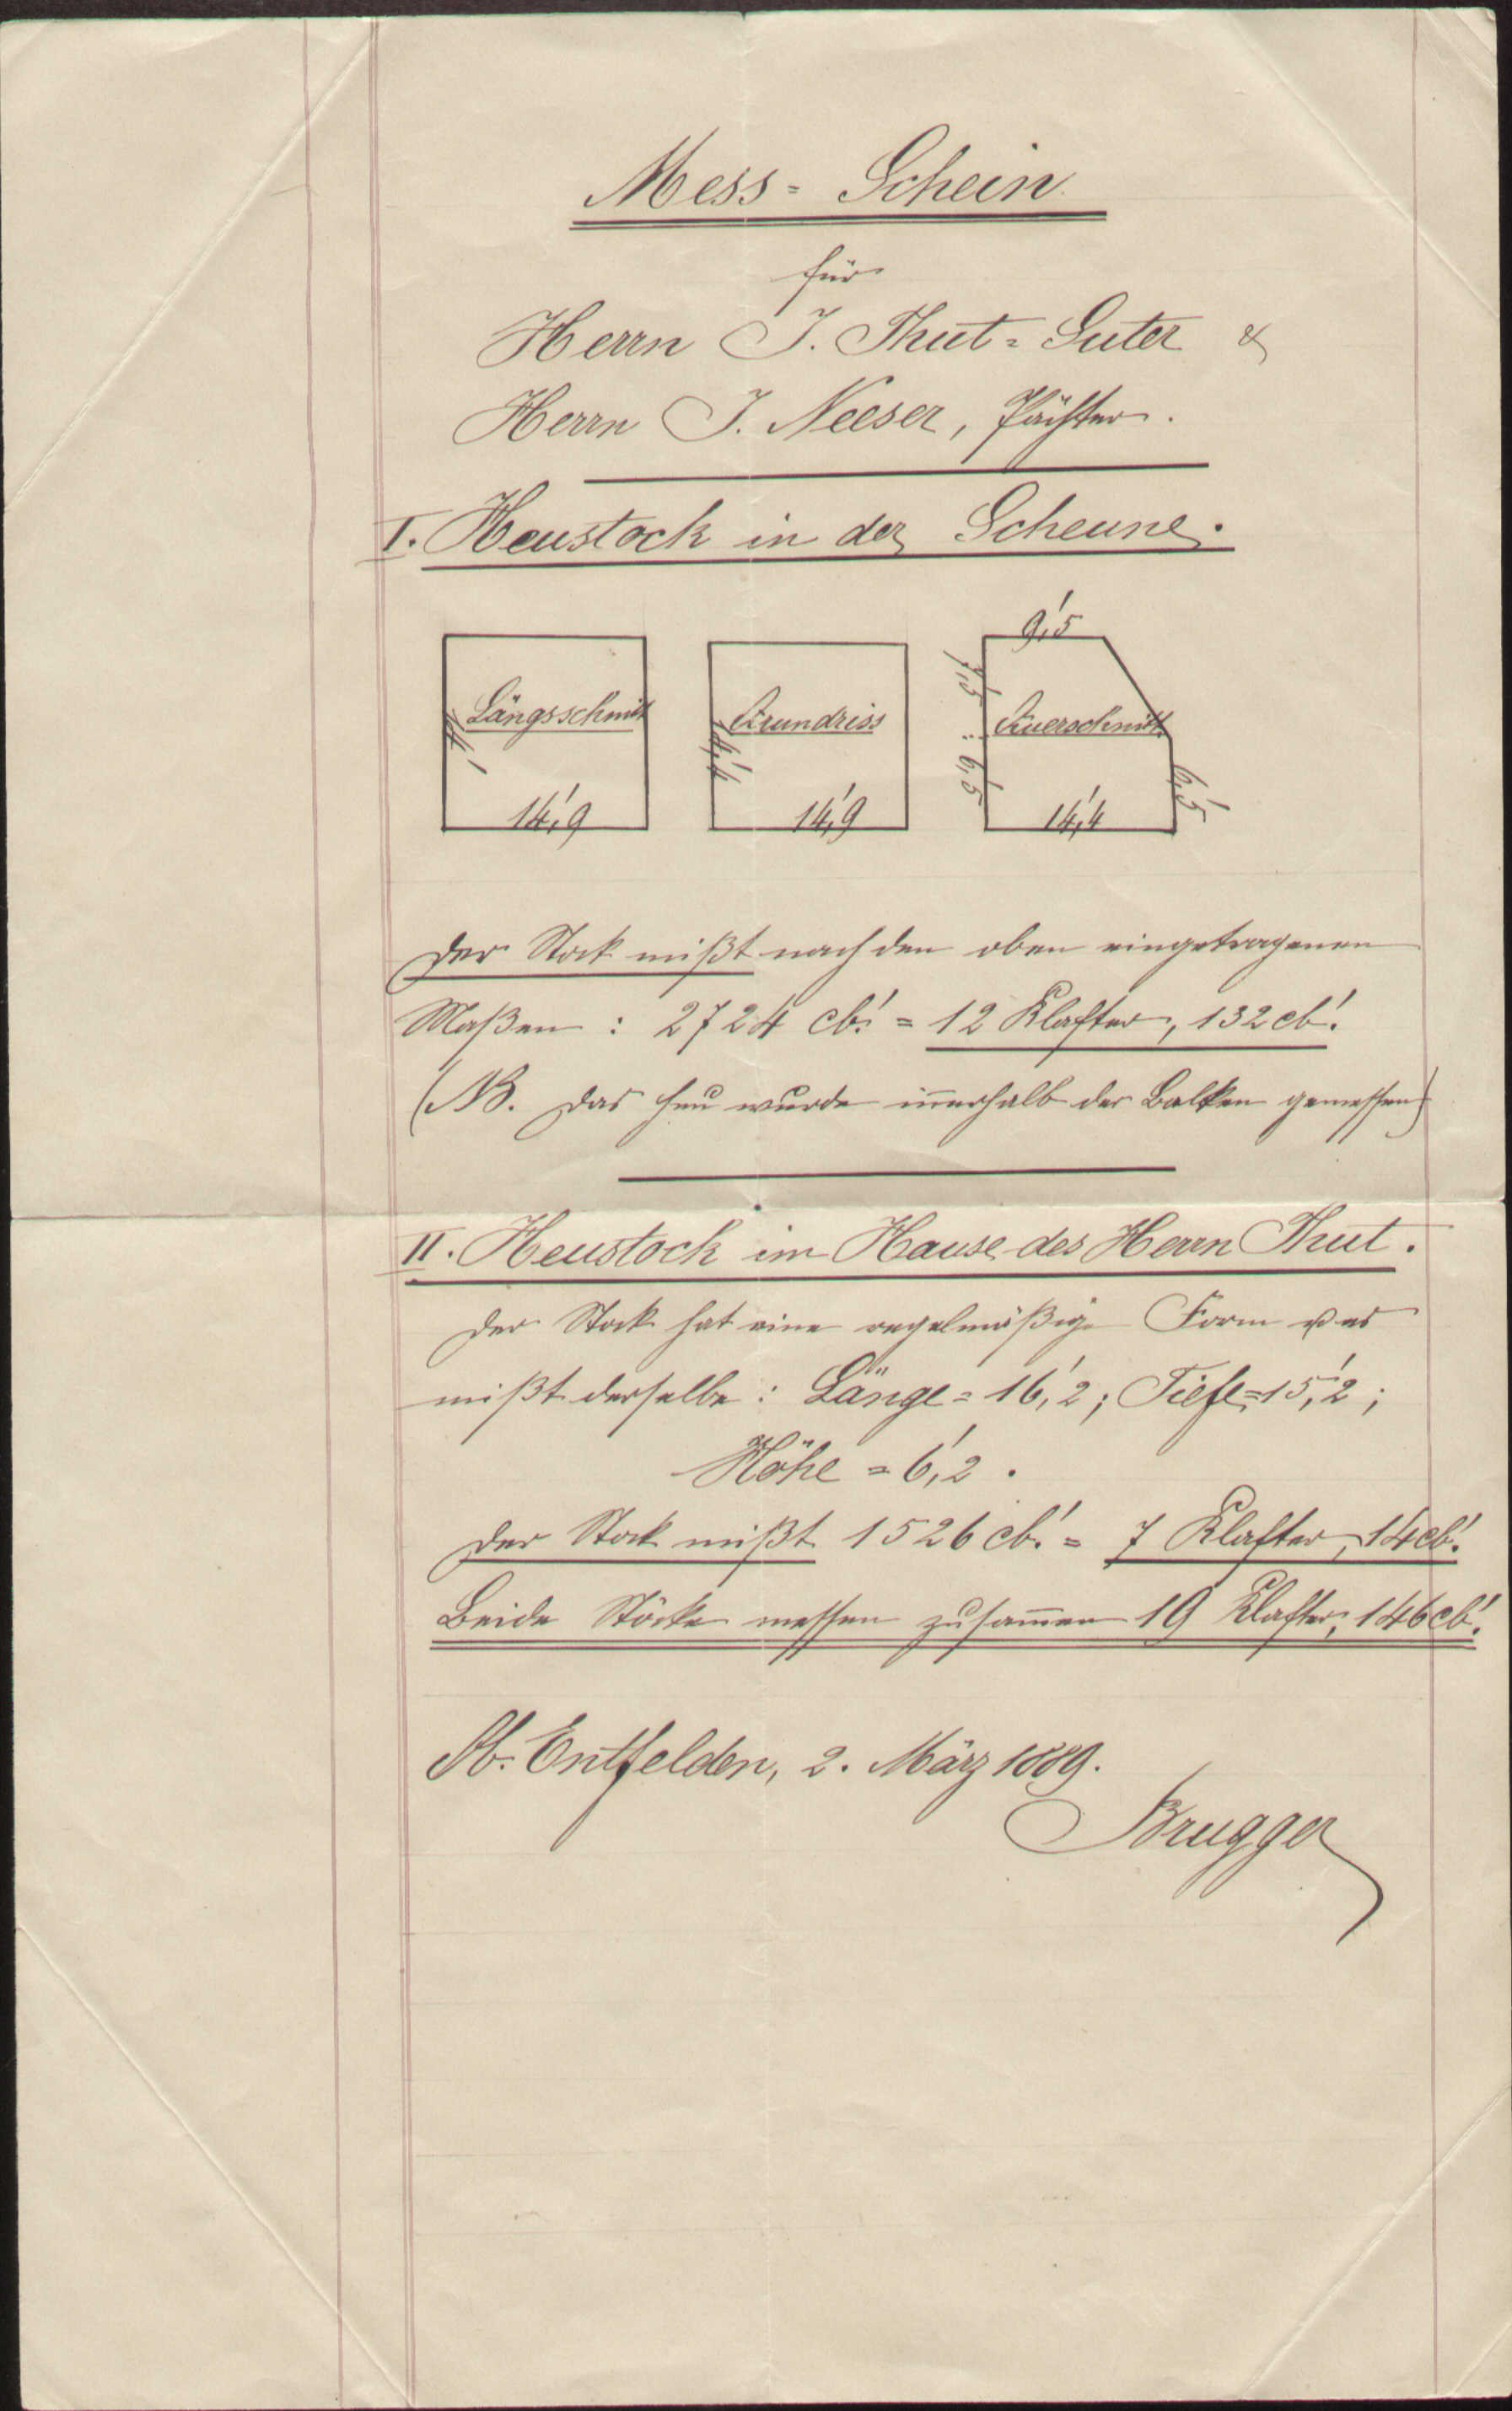 Mess- Schein
für
Herrn J. Thut- Suter &
Herrn J. Neeser, Pächter.
I. Heustock in der Scheune.
9,'5
7,'5 : 6,'5
Längsschnitt
Grundriss
Querschnitt
14'
14,'4
6,'5
14,'9
14,'9
14,'4
Der Stock mißt nach den oben eingetragenen
Maßen : 2724 cb.' = 12 Klafter, 132 cb.'
(NB. Das Heu wurde in̄erhalb der Balken gemessen)
II. Heustock im Hause des Herrn Thut.
Der Stock hat eine regelmäßige Form u. es
mißt derselbe : Länge = 16,'2 ; Tiefe = 15,'2 ;
Höhe = 6,'2 .
Der Stock mißt 1526 cb.' = 7 Klafter, 14 cb.'
Beide Stöcke messen zusam̄en 19 Klafter, 146 cb.'
Ob. Entfelden, 2. März 1889.
Brugger